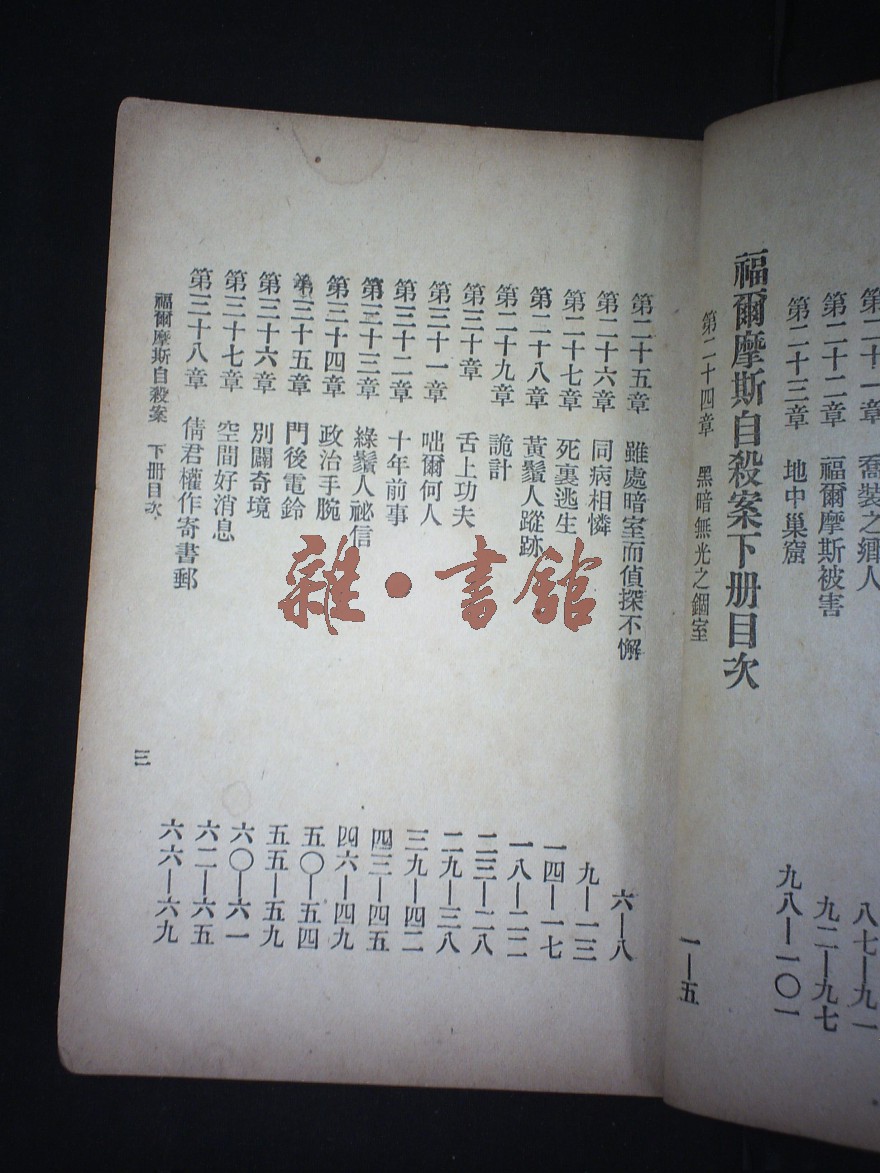 第二十一章 喬裝之鄉人 八七—九一
第二十二章 福爾摩斯被害 九二—九七
第二十三章 地中巢窟 九八—一〇一
福爾摩斯自殺案下册目次
第二十四章 黑暗無光之錮室 一—五
第二十五章 雖處暗室而偵探不懈 六—八
第二十六章 同病相憐 九—一三
第二十七章 死裏逃生 一四—一七
第二十八章 黃鬚人蹤跡 一八—二二
第二十九章 詭計 二三—二八
第三十章 舌上功夫 二九—三八
第三十一章 咄爾何人 三九—四二
第三十二章 十年前事 四三—四五
第三十三章 綠鬚人祕信 四六—四九
第三十四章 政治手腕 五〇—五四
第三十五章 門後電鈴 五五—五九
第三十六章 別闢奇境 六〇—六一
第三十七章 空間好消息 六二—六五
第三十八章 倩君權作寄書郵 六六—六九
福爾摩斯自殺案 下册目次
三
雜·書館